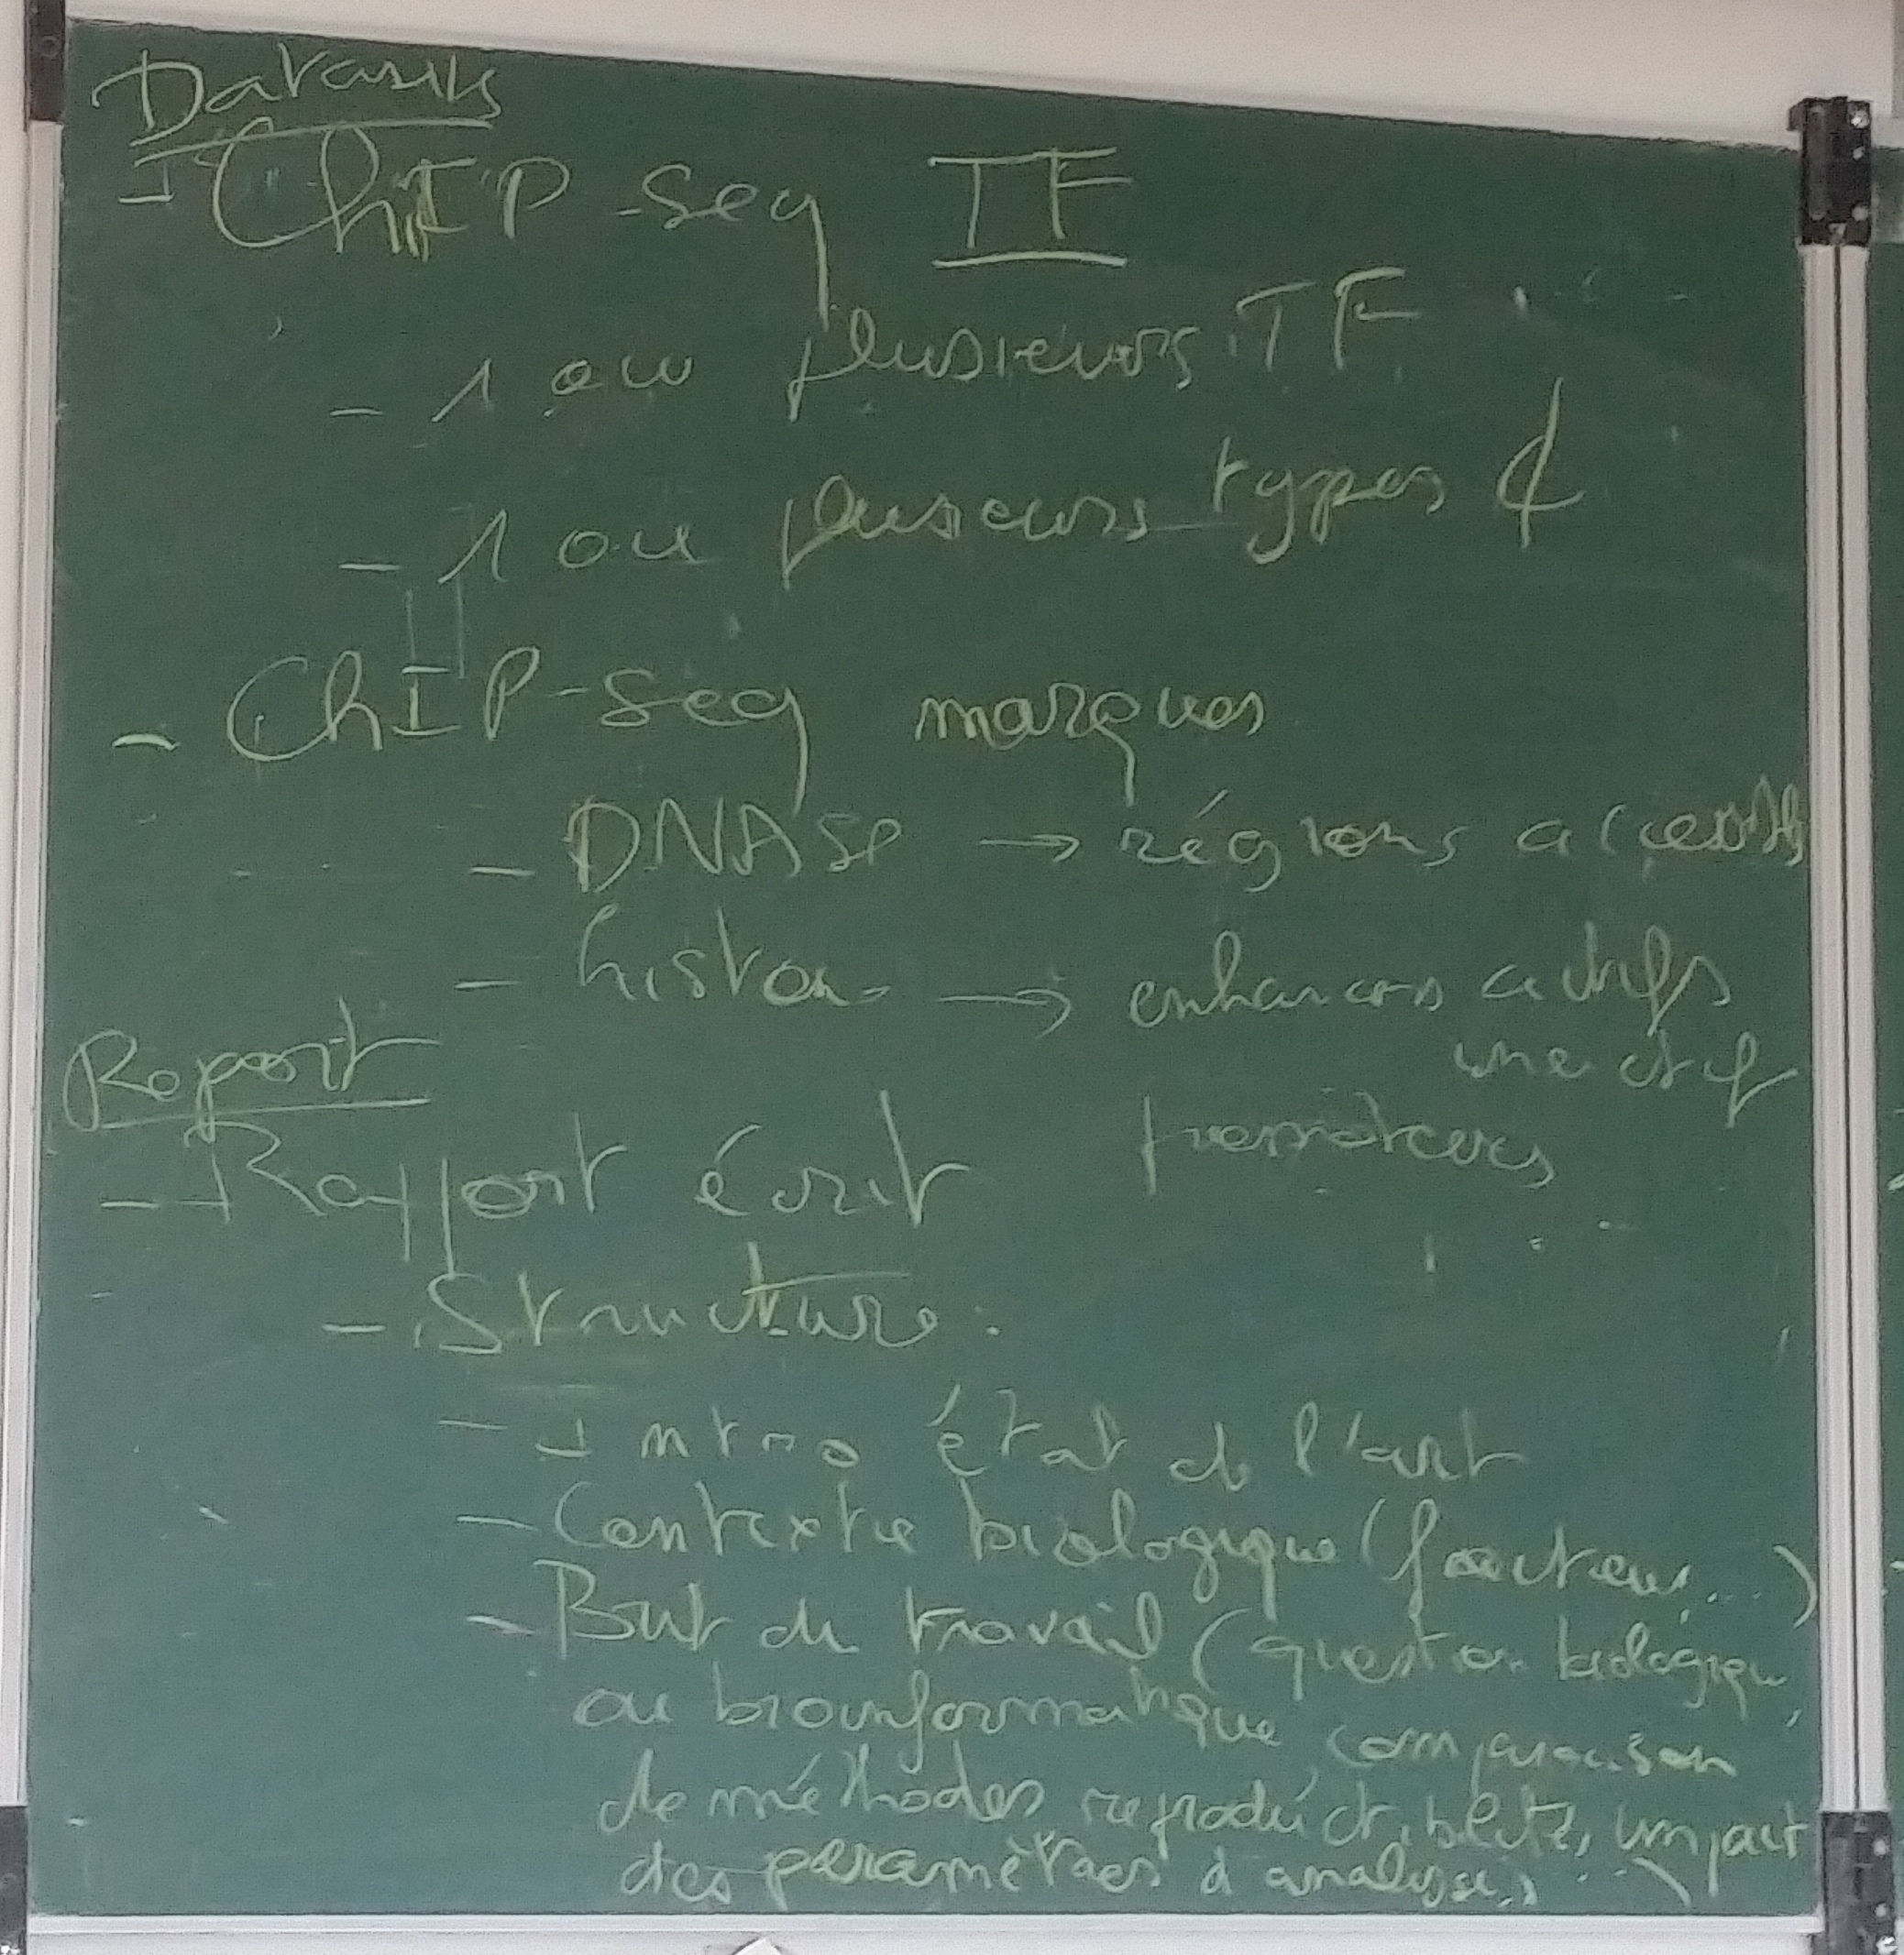 Datasets
- ChIP-seq TF
- 1 ou plusieurs TF
- 1 ou plusieurs types ¢
- ChIP-seq marques
- DNAse → régions accessibles
- histone → enhancers actifs
inactif
promoteurs
Report
- Rapport écrit
- Structure :
- Intro état de l'art
- Contexte biologique (facteur...)
- But du travail (question biologique,
ou bioinformatique, comparaison
de méthodes, reproductibilité, impact
des paramètres d'analyse, ...)